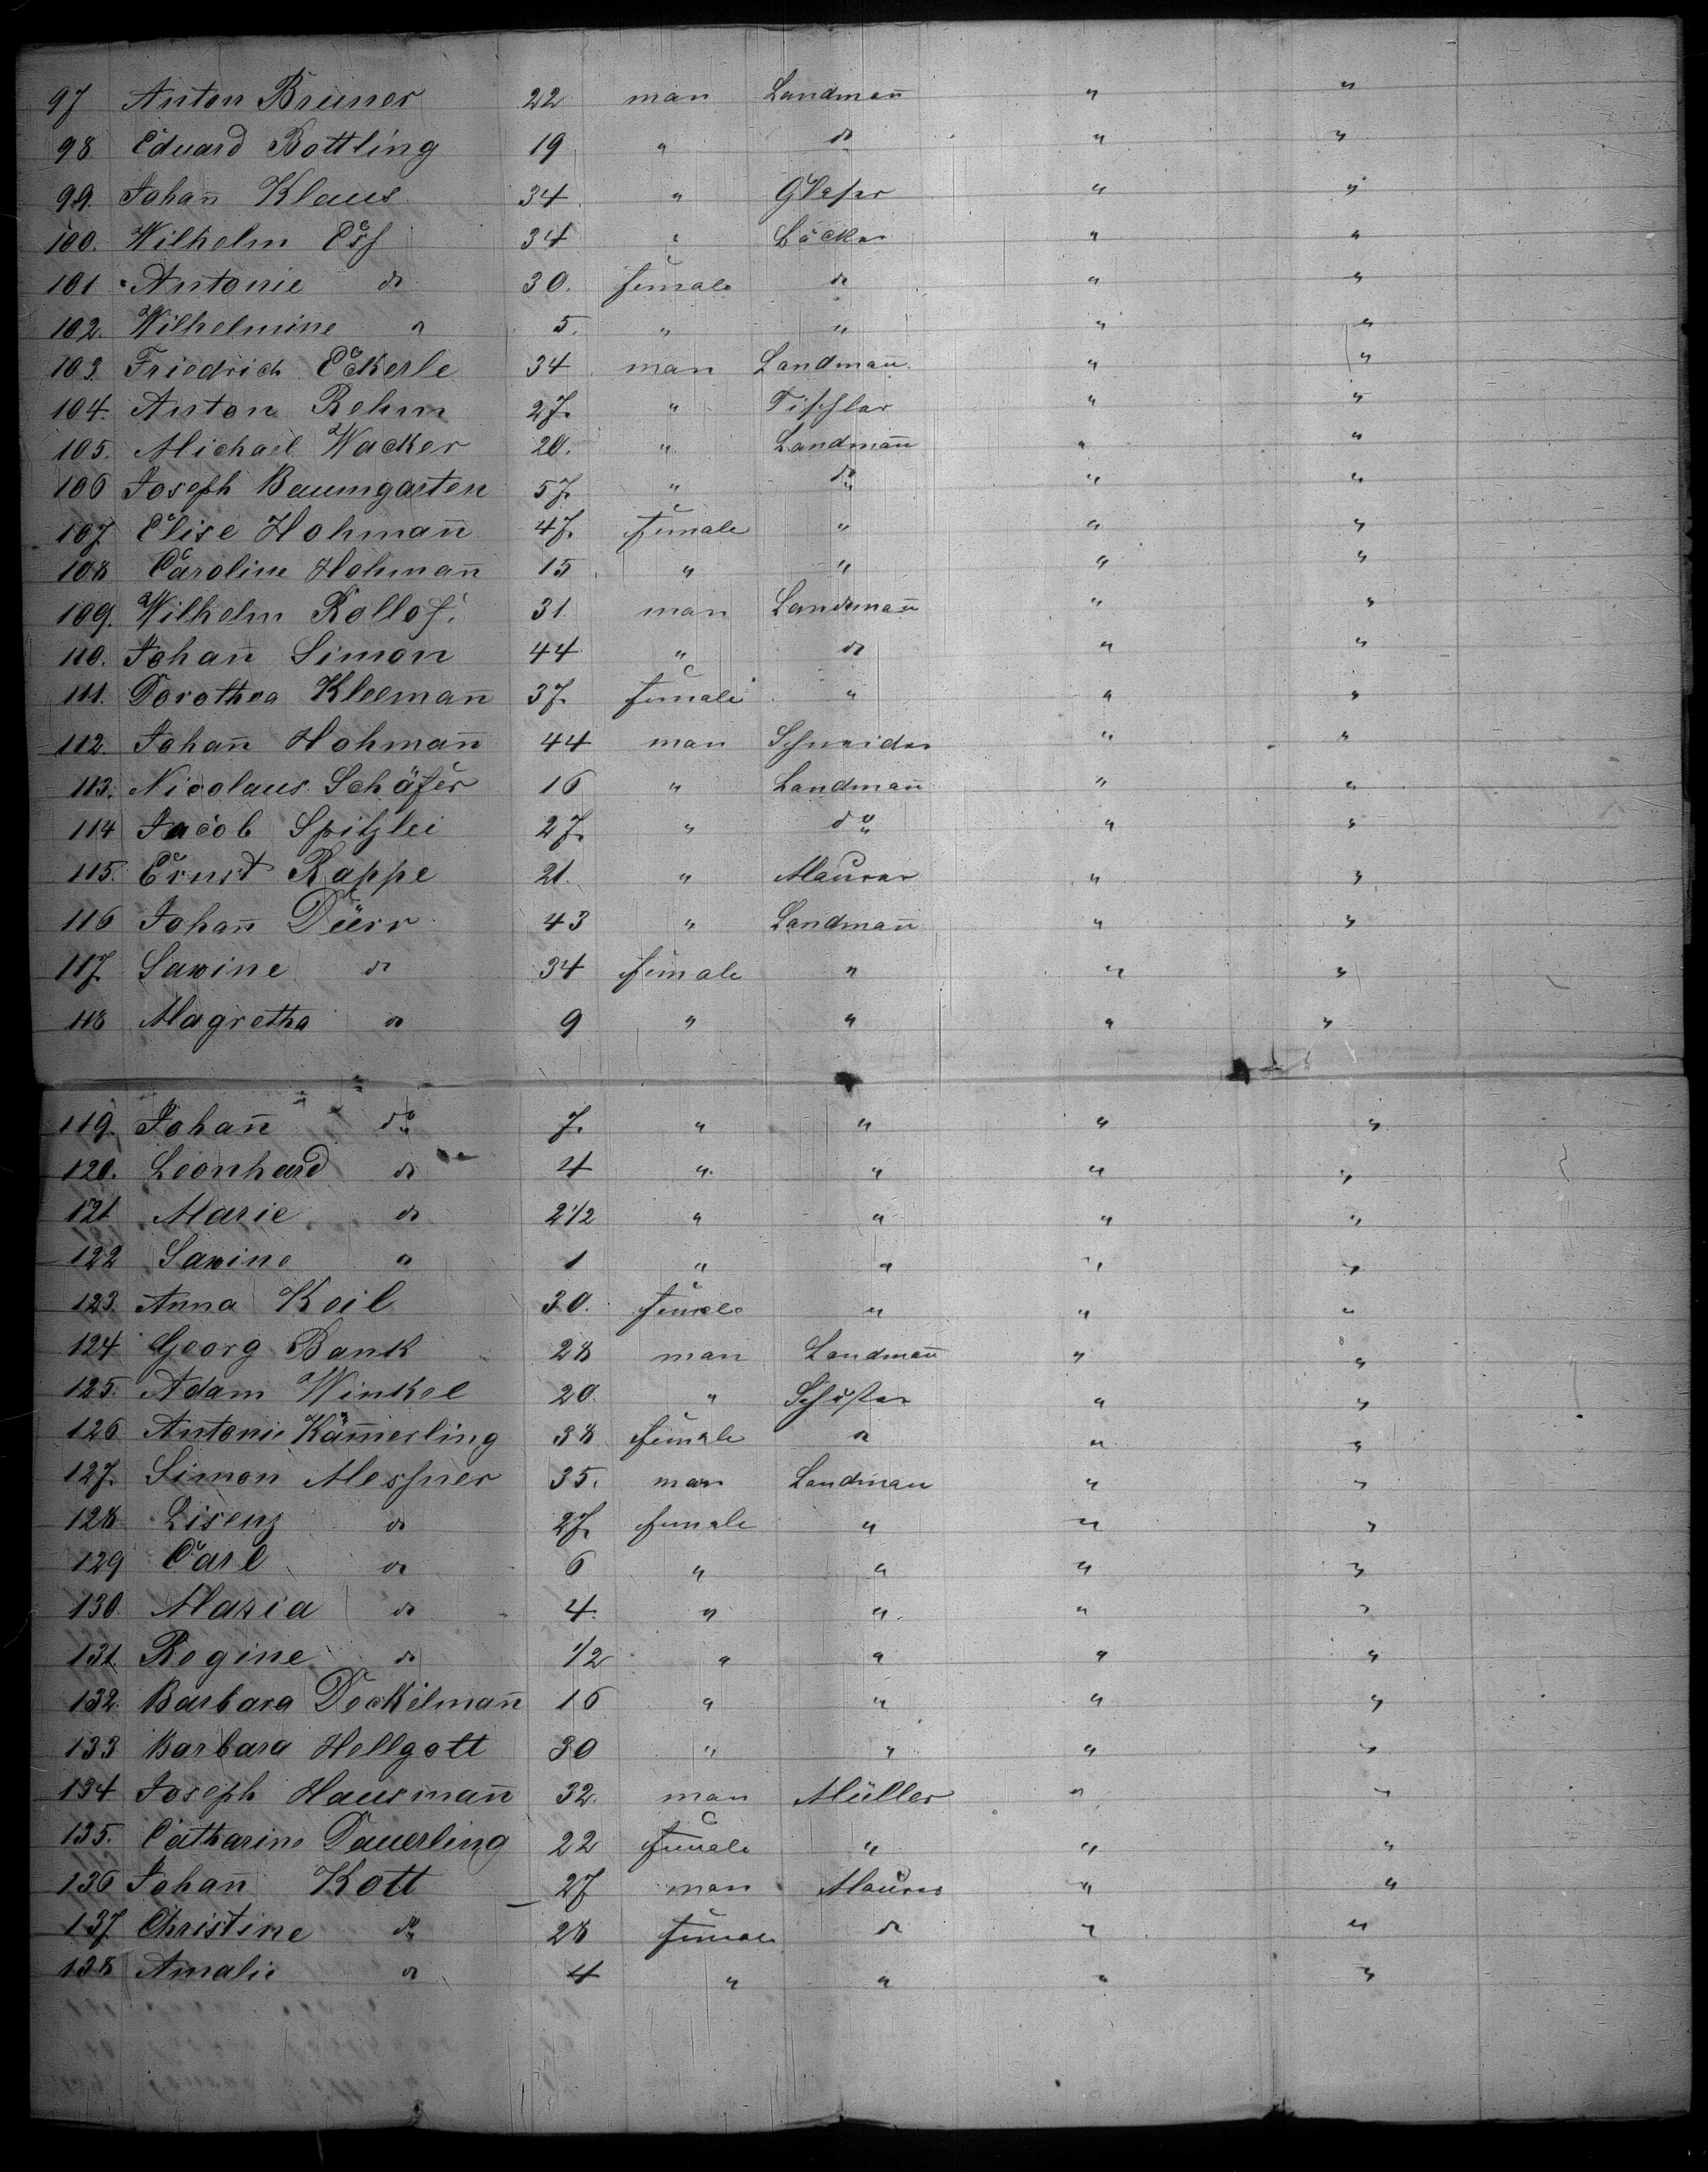 97 Anton Bruner 22 man Landmañ " "
98 Eduard Bottling 19 " do " "
99. Johañ Klaus 34 " Glaser " "
100. Wilhelm Ess 34 " Bäcker " "
101 Antonie do 30. female do " "
102. Wilhelmine " 5. " " " "
103. Friedrich Eckerle 34 man Landmañ " "
104. Anton Rehm 27. " Tischler " "
105. Michael Wacker 20. " Landmañ " "
106 Joseph Baumgarten 57. " do " "
107. Elise Hohmañ 47. female " " "
108 Caroline Hohmañ 15 " " " "
109. Wilhelm Rollof. 31 man Landmañ " "
110. Johañ Simon 44 " do " "
111. Dorothea Kleemañ 37. female " " "
112. Johañ Hohmañ 44 man Schneider " "
113. Nicolaus Schäfer 16 " Landmañ " "
114 Jacob Spitzlei 27. " do " "
115. Ernst Rappe 21. " Maurer " "
116 Johañ Düerr 43 " Landmañ " "
117. Sawine do 34 female " " "
118 Magretha do 9 " " " "
119. Johañ do 7. " " " "
120. Leonhard do 4 " " " "
121 Marie do 2 1/2 " " " "
122 Sawine " 1 " " " "
123. Anna Keil 30. female " " "
124 Georg Bank 28 man Landmañ " "
125. Adam Winkel 20. " Schuster " "
126 Antonie Käm̃erling 38 female " " "
127. Simon Messner 35. man Landman " "
128 Lisenz do 27. female " " "
129 Carl do 6 " " " "
130. Maria do 4. " " " "
131. Regine do 1/2 " " " "
132. Barbara Deckelmañ 16 " " " "
133 Barbara Hellgott 30 " " " "
134 Joseph Hausmañ 32. man Müller " "
135. Catharine Dauerling 22 female " " "
136 Johañ Kott 27 man Maurer " "
137. Christine do 28 female do " "
138 Amalie do 4 " " " "